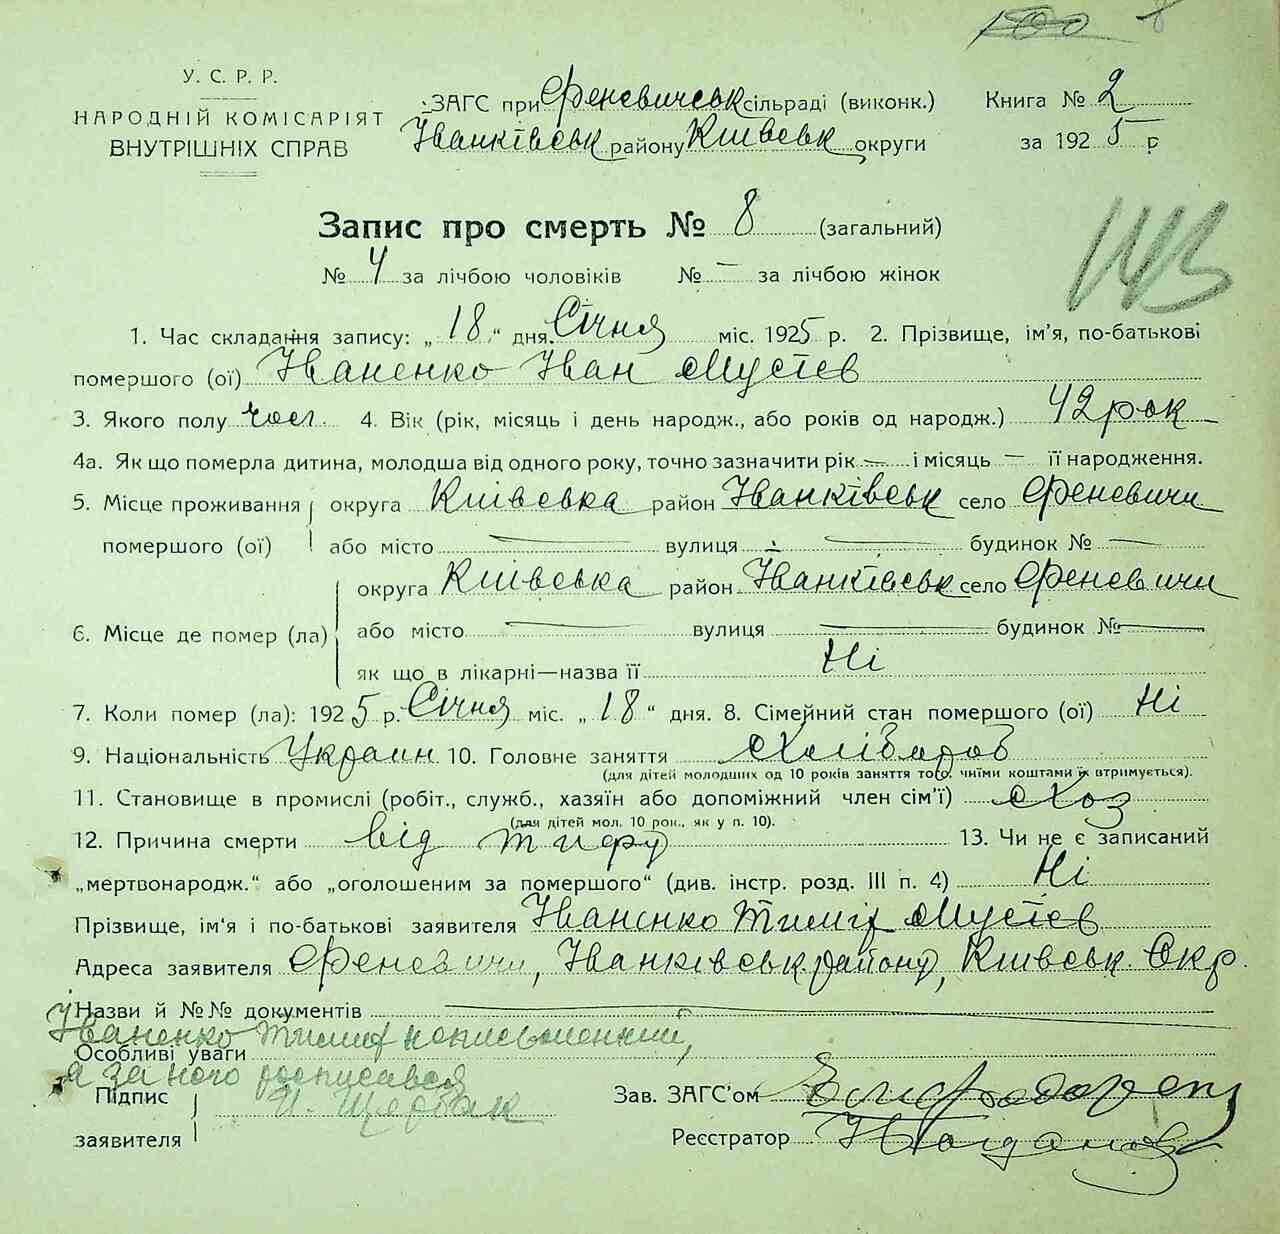 8
У. С. Р. Р.
НАРОДНІЙ КОМІСАРІЯТ
ВНУТРІШНІХ СПРАВ
ЗАГС при Феневичськ сільраді (виконк.)
Іванківськ району Київськ округи
Книга № 2
за 1925 р
Запис про смерть № 8 (загальний)
№ 4 за лічбою чоловіків № — за лічбою жінок
1. Час складання запису: „18“ дня Січня міс. 1925 р. 2. Прізвище, ім’я, по-батькові
помершого (ої) Іваненко Іван Мусієв
3. Якого полу чол. 4. Вік (рік, місяць і день народж., або років од народж.) 42 рок
4а. Як що померла дитина, молодша від одного року, точно зазначити рік — і місяць — її народження.
5. Місце проживання округа Київська район Іванківськ село Феневичи
помершого (ої) або місто — вулиця — будинок № —
округа Київська район Іванківськ село Феневичи
6. Місце де помер (ла) або місто — вулиця — будинок № —
як що в лікарні—назва її Ні
7. Коли помер (ла): 1925 р. Січня міс. „18“ дня. 8. Сімейний стан помершого (ої) Ні
9. Національність Украин 10. Головне заняття Хлібороб
(для дітей молодших од 10 років заняття того, чиїми коштами їх втримується).
11. Становище в промислі (робіт., служб., хазяїн або допоміжний член сім’ї) Хоз
(для дітей мол. 10 рок., як у п. 10).
12. Причина смерти від тифу 13. Чи не є записаний
„мертвонародж.“ або „оголошеним за помершого“ (див. інстр. розд. III п. 4) Ні
Прізвище, ім‘я і по-батькові заявителя Іваненко Тиміш Мусієв
Адреса заявителя Феневичи, Іванківськ. району, Київськ. Окр.
Назви й №№ документів —
Іваненко Тимиш неписьменний,
Особливі уваги
а за його росписався
Підпис
заявителя
И. Щербак
Зав. ЗАГС’ом
Реєстратор